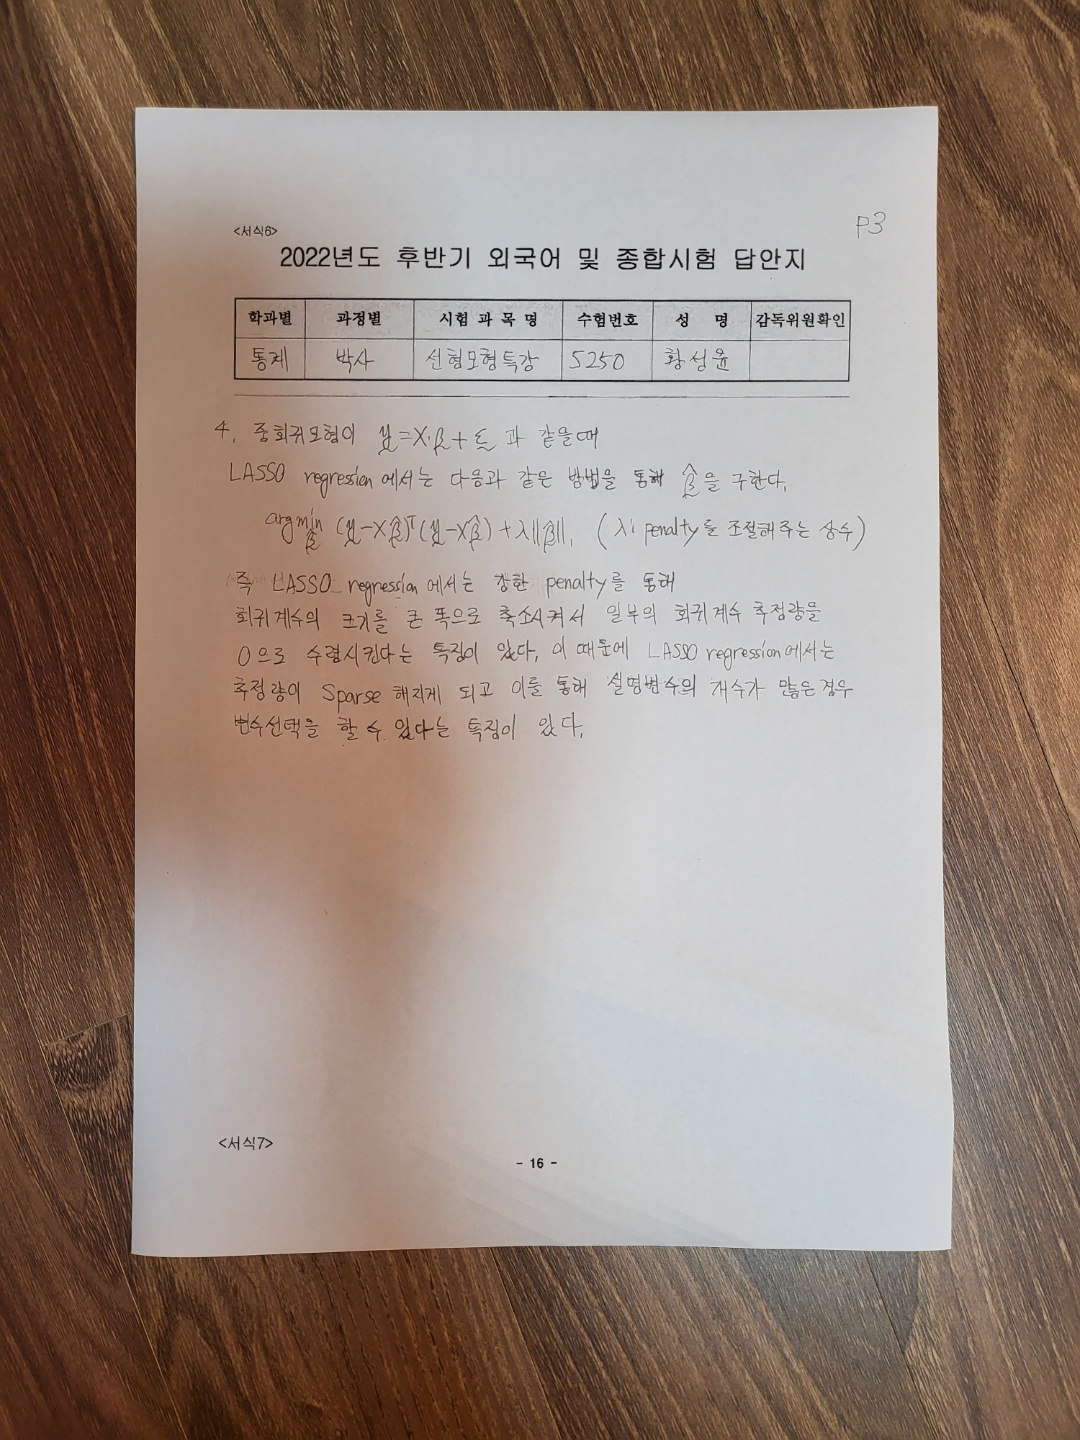 P3
<서식6>
2022년도 후반기 외국어 및 종합시험 답안지
학과별 과정별 시험 과 목 명 수험번호 성 명 감독위원확인
통계 박사 선형모형특강 5250 황성윤
4. 중회귀모형이 y = X·β + ε 과 같을때
LASSO regression 에서는 다음과 같은 방법을 통해 β̂을 구한다.
argmin β (y-Xβ)ᵀ(y-Xβ) + λ||β||₁ (λ: penalty를 조절해주는 상수)
즉 LASSO regression 에서는 강한 penalty를 통해
회귀계수의 크기를 큰 폭으로 축소시켜서 일부의 회귀계수 추정량을
0으로 수렴시킨다는 특징이 있다. 이 때문에 LASSO regression에서는
추정량이 Sparse 해지게 되고 이를 통해 설명변수의 개수가 많은경우
변수선택을 할 수 있다는 특징이 있다.
<서식7>
- 16 -